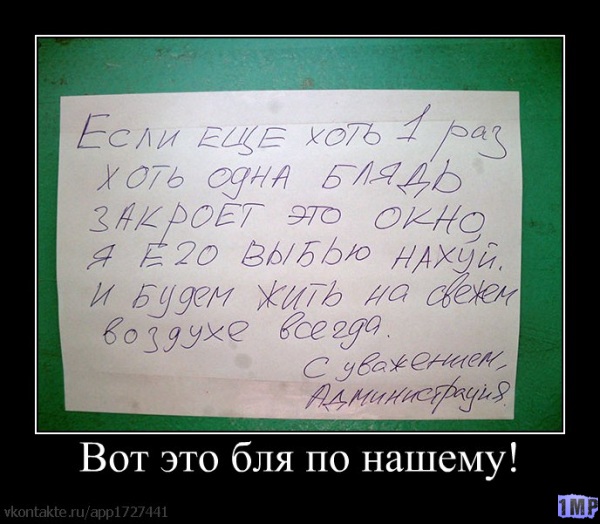 Если ЕЩЕ хоть 1 раз
хоть одна БЛЯДЬ
ЗАКРОЕТ это ОКНО,
Я ЕГО ВЫБЬЮ НАХУЙ.
и Будем жить на свежем
воздухе всегда.
С уважением,
Администрация.
Вот это бля по нашему!
vkontakte.ru/app1727441
1MP